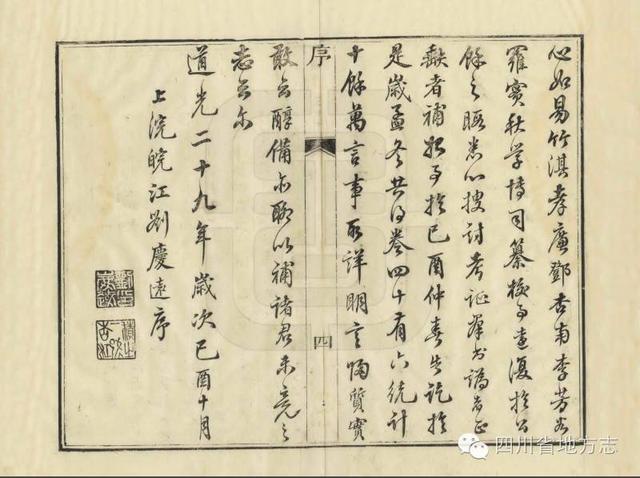 心如易竹淇孝廉鄧杏南李芳谷
羅實秋學博司纂校予遠復於公
餘之暇悉心搜討考證羣書譌者正
缺者補於己酉仲春告訖於
是歲孟冬共得卷四十有六統計
十餘萬言事取詳明言歸質實
敢云醇備亦聊以補諸君未竟之
志云尔
道光二十九年歲次己酉十月
上浣皖江劉慶遠序
序
四
四川省地方志